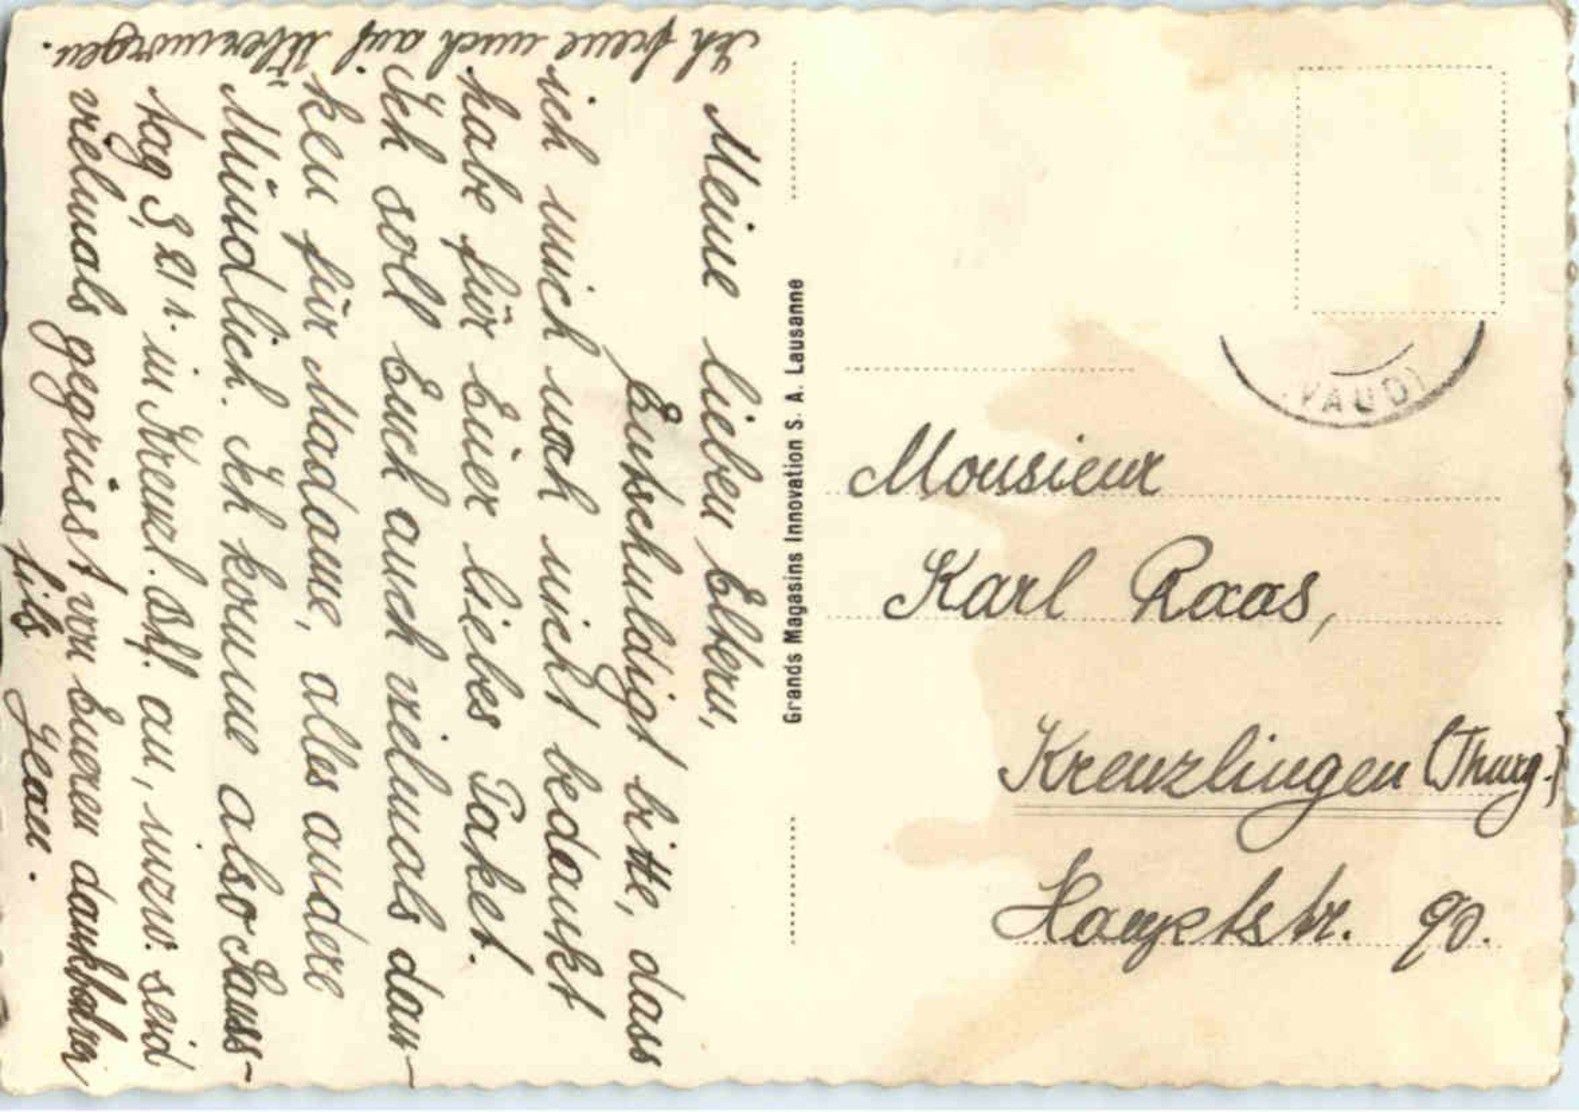 Meine lieben Eltern,
Entschuldigt bitte, dass
ich mich noch nicht bedankt
habe für Euer liebes Paket.
Ich soll Euch auch vielmals dan-
ken für Madame, alles andere
Mündlich. Ich komme also Sams-
tag 3, 21 h. in Kreuzl. Bhf. an, inzw. seid
vielmals gegrüsst von Eurem dankbaren
fils Jean.
Ich freue mich auf Übermorgen.
Grands Magasins Innovation S. A. Lausanne
(VAUD)
Monsieur
Karl Raas,
Kreuzlingen (Thurg.)
Hauptstr. 90.